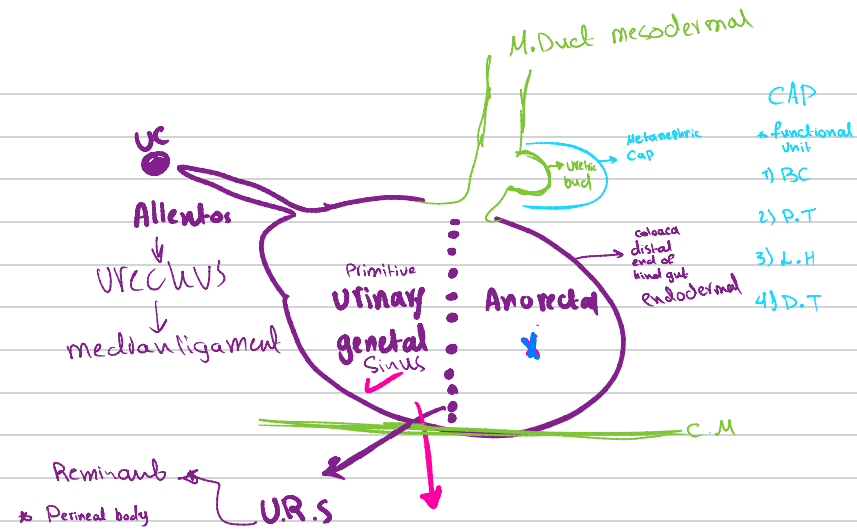 M.Duct mesodermal
CAP
* functional
unit
1) BC
2) P.T
3) L.H
4) D.T
Metanephric
Cap
Uretric
bud
UC
Allentos
Urechus
medianligament
Primitive
Urinary
genetal
Sinus
Anorectal
Coloaca
distal
end of
hind gut
endodermal
C.M
Reminant
* Perineal body
U.R.S